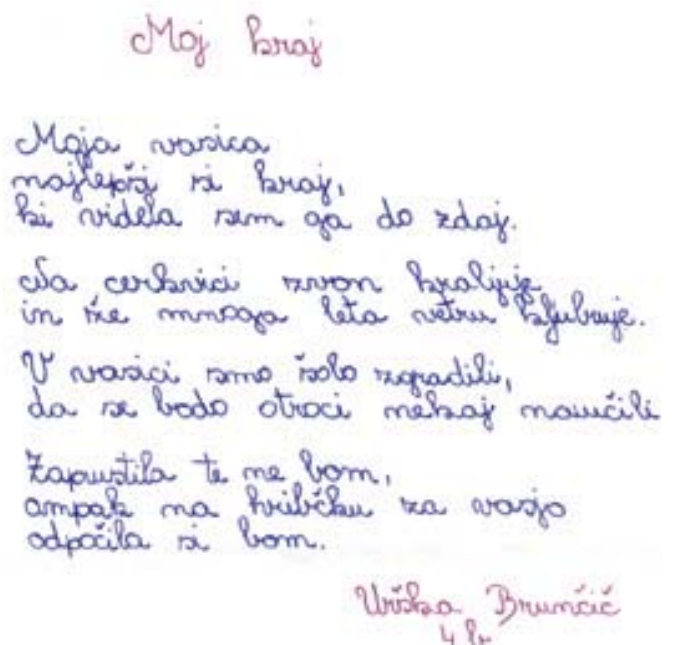 Moj kraj
Moja vasica
najlepši si kraj,
ki videla sem ga do zdaj.
Na cerkvici zvon kraljuje
in že mnoga leta vetru kljubuje.
V vasici smo šolo zgradili,
da se bodo otroci nekaj naučili
Zapustila te ne bom,
ampak na hribčku za vasjo
odpočila si bom.
Urška Brunčič
4. r.